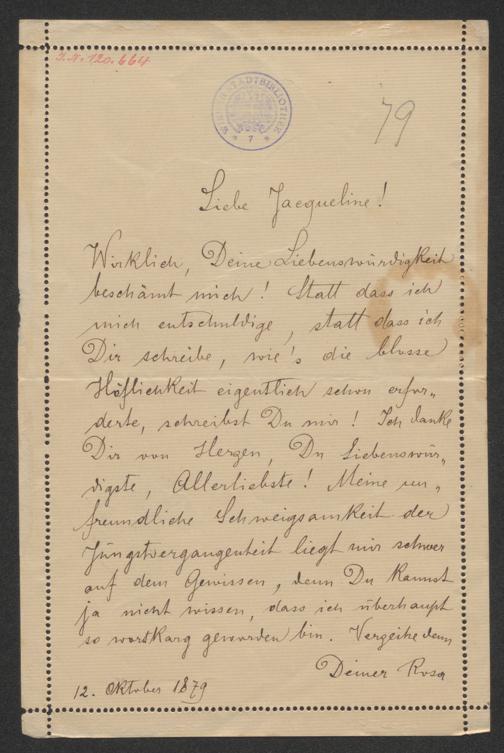 I.N. 120.664
WIENER STADTBIBLIOTHEK
7
79
Liebe Jacqueline!
Wirklich, Deine Liebenswürdigkeit
beschämt mich! Statt dass ich
mich entschuldige, statt dass ich
Dir schreibe, wie's die blosse
Höflichkeit eigentlich schon erfor„
derte, schreibst Du mir! Ich danke
Dir von Herzen, Du Liebenswür„
digste, Allerliebste! Meine un„
freundliche Schweigsamkeit der
Jüngstvergangenheit liegt mir schwer
auf dem Gewissen, denn Du kannst
ja nicht wissen, dass ich überhaupt
so wortkarg geworden bin. Verzeihe denn
Deiner Rosa
12. Oktober 1879